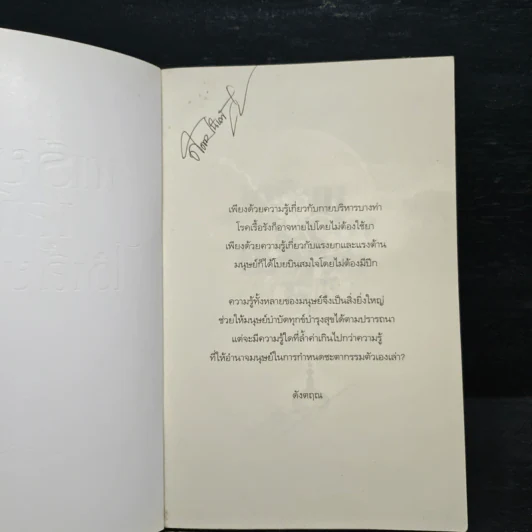 เพียงด้วยความรู้เกี่ยวกับกายบริหารบางท่า
โรคเรื้อรังก็อาจหายไปโดยไม่ต้องใช้ยา
เพียงด้วยความรู้เกี่ยวกับแรงยกและแรงต้าน
มนุษย์ก็ได้โบยบินสมใจโดยไม่ต้องมีปีก
ความรู้ทั้งหลายของมนุษย์จึงเป็นสิ่งยิ่งใหญ่
ช่วยให้มนุษย์บำบัดทุกข์บำรุงสุขได้ตามปรารถนา
แต่จะมีความรู้ใดที่ล้ำค่าเกินไปกว่าความรู้
ที่ให้อำนาจมนุษย์ในการกำหนดชะตากรรมตัวเองเล่า?
ดังตฤณ